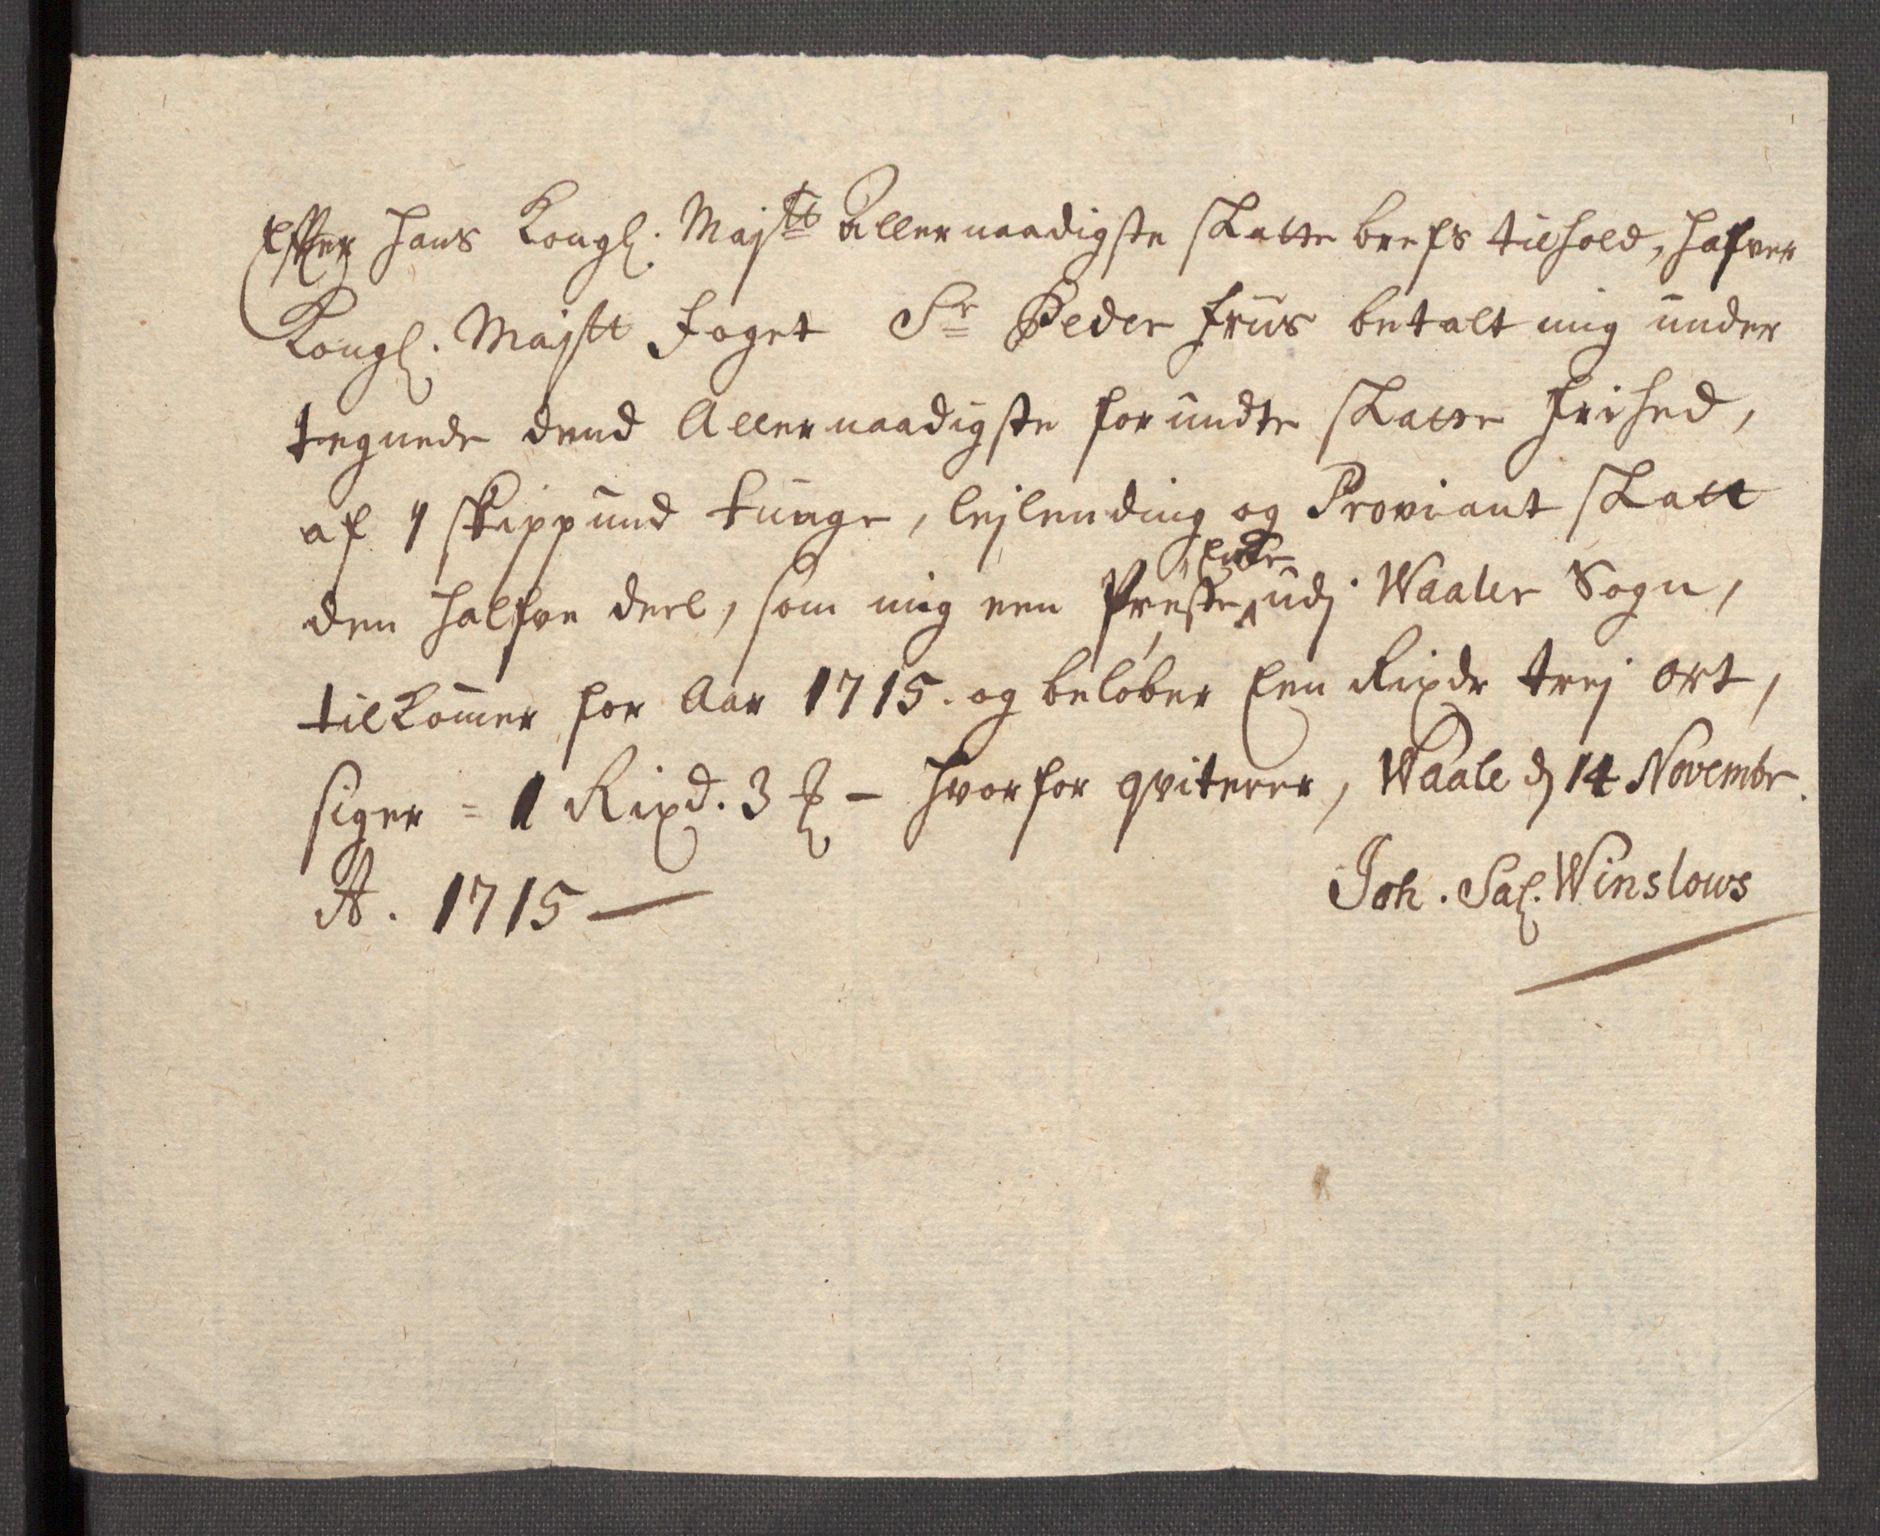 Efter hans Kongl. Majtts Allernaadigste skatte brefs tilhold, hafver
Kongl. Majstt foget Sr Peder Friis betalt mig under
tegnede dend Allernaadigste forundte skatte frihed,
af 1 skippund tunge, lejlending og Proviant skatt
den halfve deel, som mig een Preste Enke udj Waaler Sogn,
tilkom̄er for Aar 1715. og beløber Een Rixdr trej ort,
siger = 1 Rixd. 3 ꝭ – hvorfor qviterer, Waale dȷ 14 Novembr.
A. 1715 —
Joh. Sal. Winslows